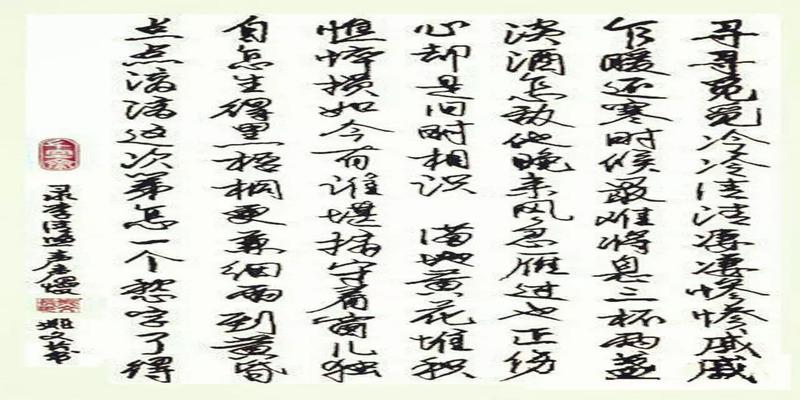 寻寻觅觅冷冷清清凄凄惨惨戚戚
乍暖还寒时候最难将息三杯两盏
淡酒怎敌他晚来风急雁过也正伤
心却是旧时相识 满地黄花堆积
憔悴损如今有谁堪摘守着窗儿独
自怎生得黑梧桐更兼细雨到黄昏
点点滴滴这次第怎一个愁字了得
录李清照声声慢 书